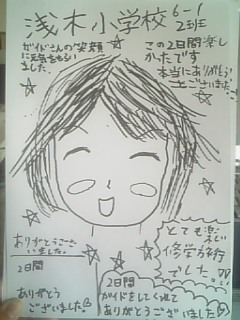 浅木小学校 6-1
2班
ガイドさんの笑顔
に元気をもらい
ました。
この2日間楽し
かったです
本当にありがとう
ございました!
とても楽しい
修学旅行
でした。!!
ありがとうござ
いました。
2日間
ありがとう
ございました
2日間
ガイドをしてくれて
ありがとうございました